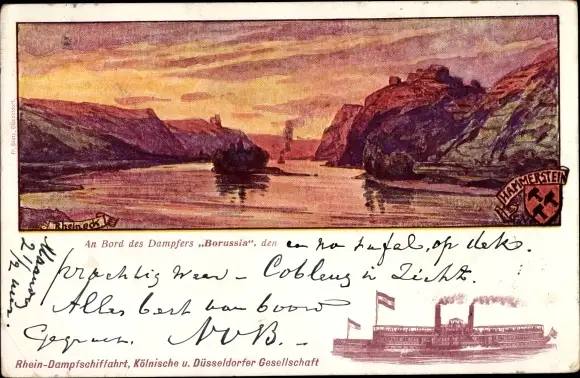 HAMMERSTEIN
Rheineck
An Bord des Dampfers „Borussia“, den en na tafal, op dek.
prachtig weer — Coblenz in Zicht.
Alles best aan boord
Gegroet. NVB. —
Maandag
2½ uur.
Rhein-Dampfschiffahrt, Kölnische u. Düsseldorfer Gesellschaft